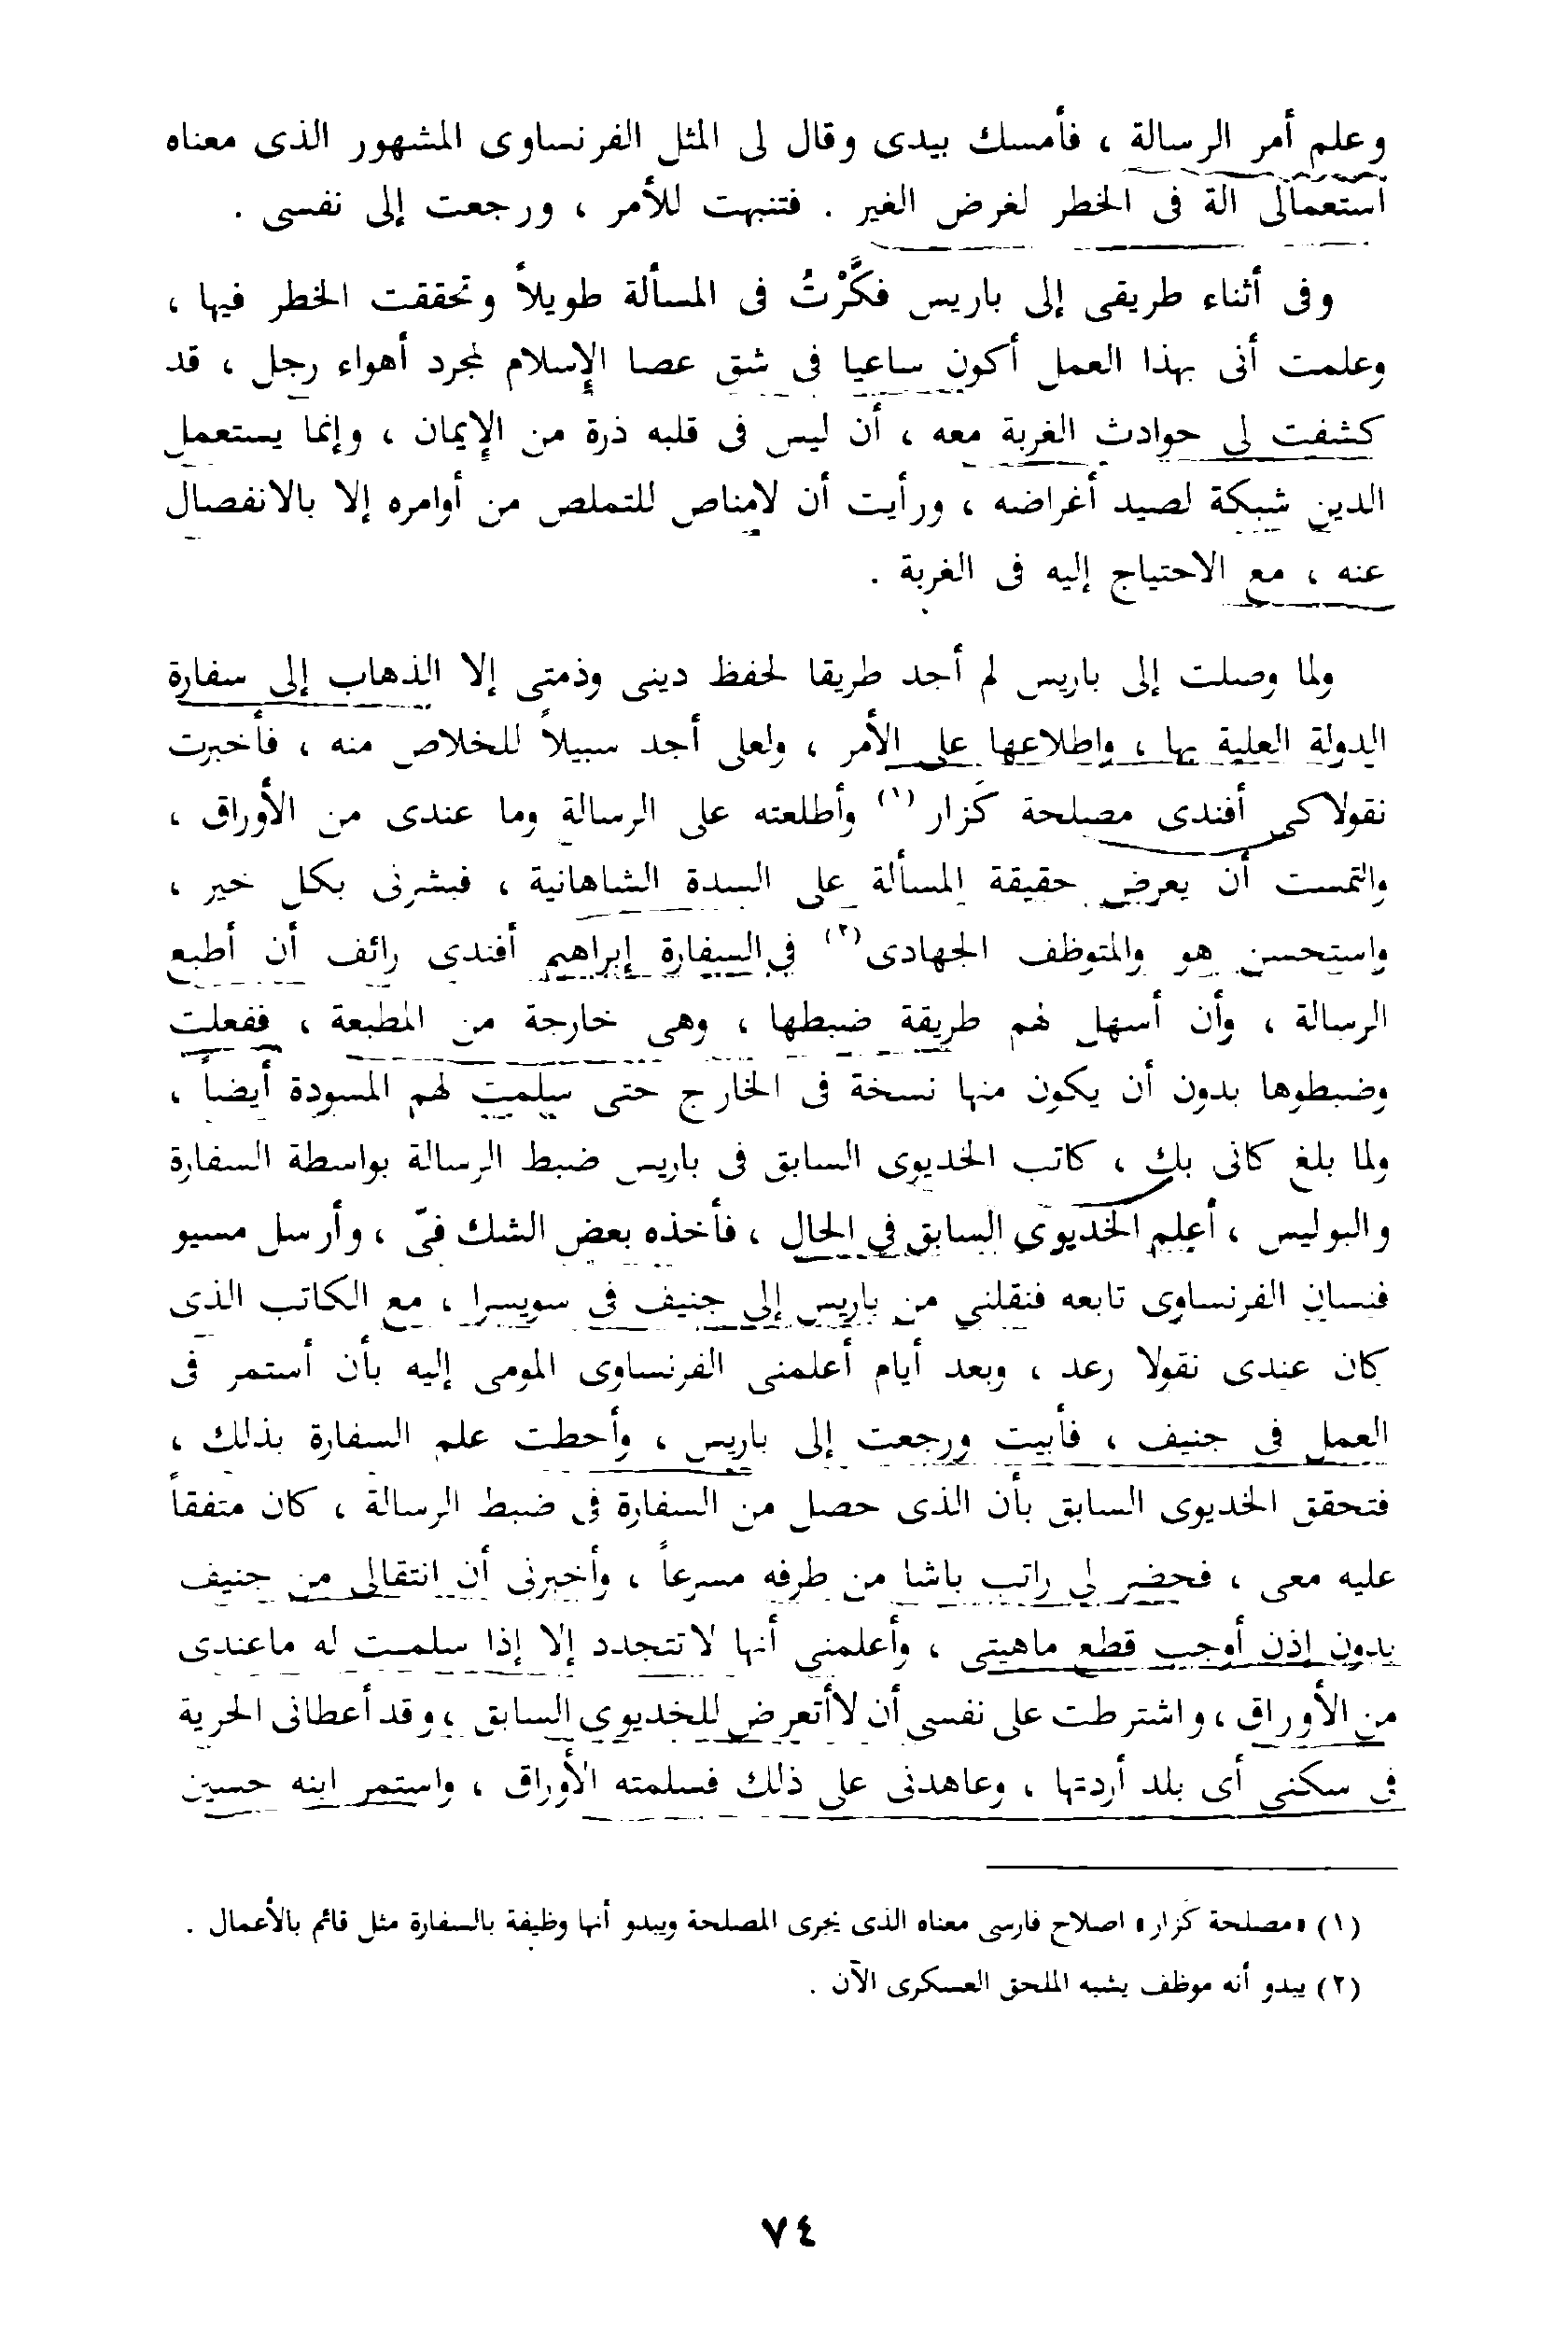 وعلم أمر الرسالة ، فأمسك بيدى وقال لى المثل الفرنساوى المشهور الذى معناه
استعمالى الة فى الخطر لغرض الغير . فتنبهت للأمر ، ورجعت إلى نفسى .
وفى أثناء طريقى إلى باريس فكَّرْتُ فى المسألة طويلاً وتحققت الخطر فيها ،
وعلمت أنى بهذا العمل أكون ساعيا فى شق عصا الإسلام لمجرد أهواء رجل ، قد
كشفت لى حوادث الغربة معه ، أن ليس فى قلبه ذرة من الإيمان ، وإنما يستعمل
الدين شبكة لصيد أغراضه ، ورأيت أن لامناص للتملص من أوامره إلا بالانفصال
عنه ، مع الاحتياج إليه فى الغربة .
ولما وصلت إلى باريس لم أجد طريقا لحفظ دينى وذمتى إلا الذهاب إلى سفارة
الدولة العلية بها ، واطلاعها على الأمر ، ولعلى أجد سبيلاً للخلاص منه ، فأخبرت
نقولاكى أفندى مصلحة كَزار (١) وأطلعته على الرسالة وما عندى من الأوراق ،
والتمست أن يعرض حقيقة المسألة على السدة الشاهانية ، فبشرنى بكل خير ،
واستحسن هو والمتوظف الجهادى(٢) فى السفارة إبراهيم أفندى رائف أن أطبع
الرسالة ، وأن أسهل لهم طريقة ضبطها ، وهى خارجة من المطبعة ، ففعلت
وضبطوها بدون أن يكون منها نسخة فى الخارج حتى سلمت لهم المسودة أيضاً ،
ولما بلغ كانى بك ، كاتب الخديوى السابق فى باريس ضبط الرسالة بواسطة السفارة
والبوليس ، أعلم الخديوى السابق فى الحال ، فأخذه بعض الشك فىّ ، وأرسل مسيو
فنسان الفرنساوى تابعه فنقلنى من باريس إلى جنيف فى سويسرا ، مع الكاتب الذى
كان عندى نقولا رعد ، وبعد أيام أعلمنى الفرنساوى المومى إليه بأن أستمر فى
العمل فى جنيف ، فأبيت ورجعت إلى باريس ، وأحطت علم السفارة بذلك ،
فتحقق الخديوى السابق بأن الذى حصل من السفارة فى ضبط الرسالة ، كان متفقاً
عليه معى ، فحضر لى راتب باشا من طرفه مسرعاً ، وأخبرنى أن انتقالى من جنيف
بدون إذن أوجب قطع ماهيتى ، وأعلمنى أنها لا تتجدد إلا إذا سلمت له ماعندى
من الأوراق ، واشترطت على نفسى أن لاأتعرض للخديوى السابق ، وقد أعطانى الحرية
فى سكنى أى بلد أردتها ، وعاهدنى على ذلك فسلمته الأوراق ، واستمر ابنه حسين
(١) «مصلحة كَزار» اصلاح فارسى معناه الذى يجرى المصلحة ويبدو أنها وظيفة بالسفارة مثل قائم بالأعمال .
(٢) يبدو أنه موظف يشبه الملحق العسكرى الآن .
٧٤